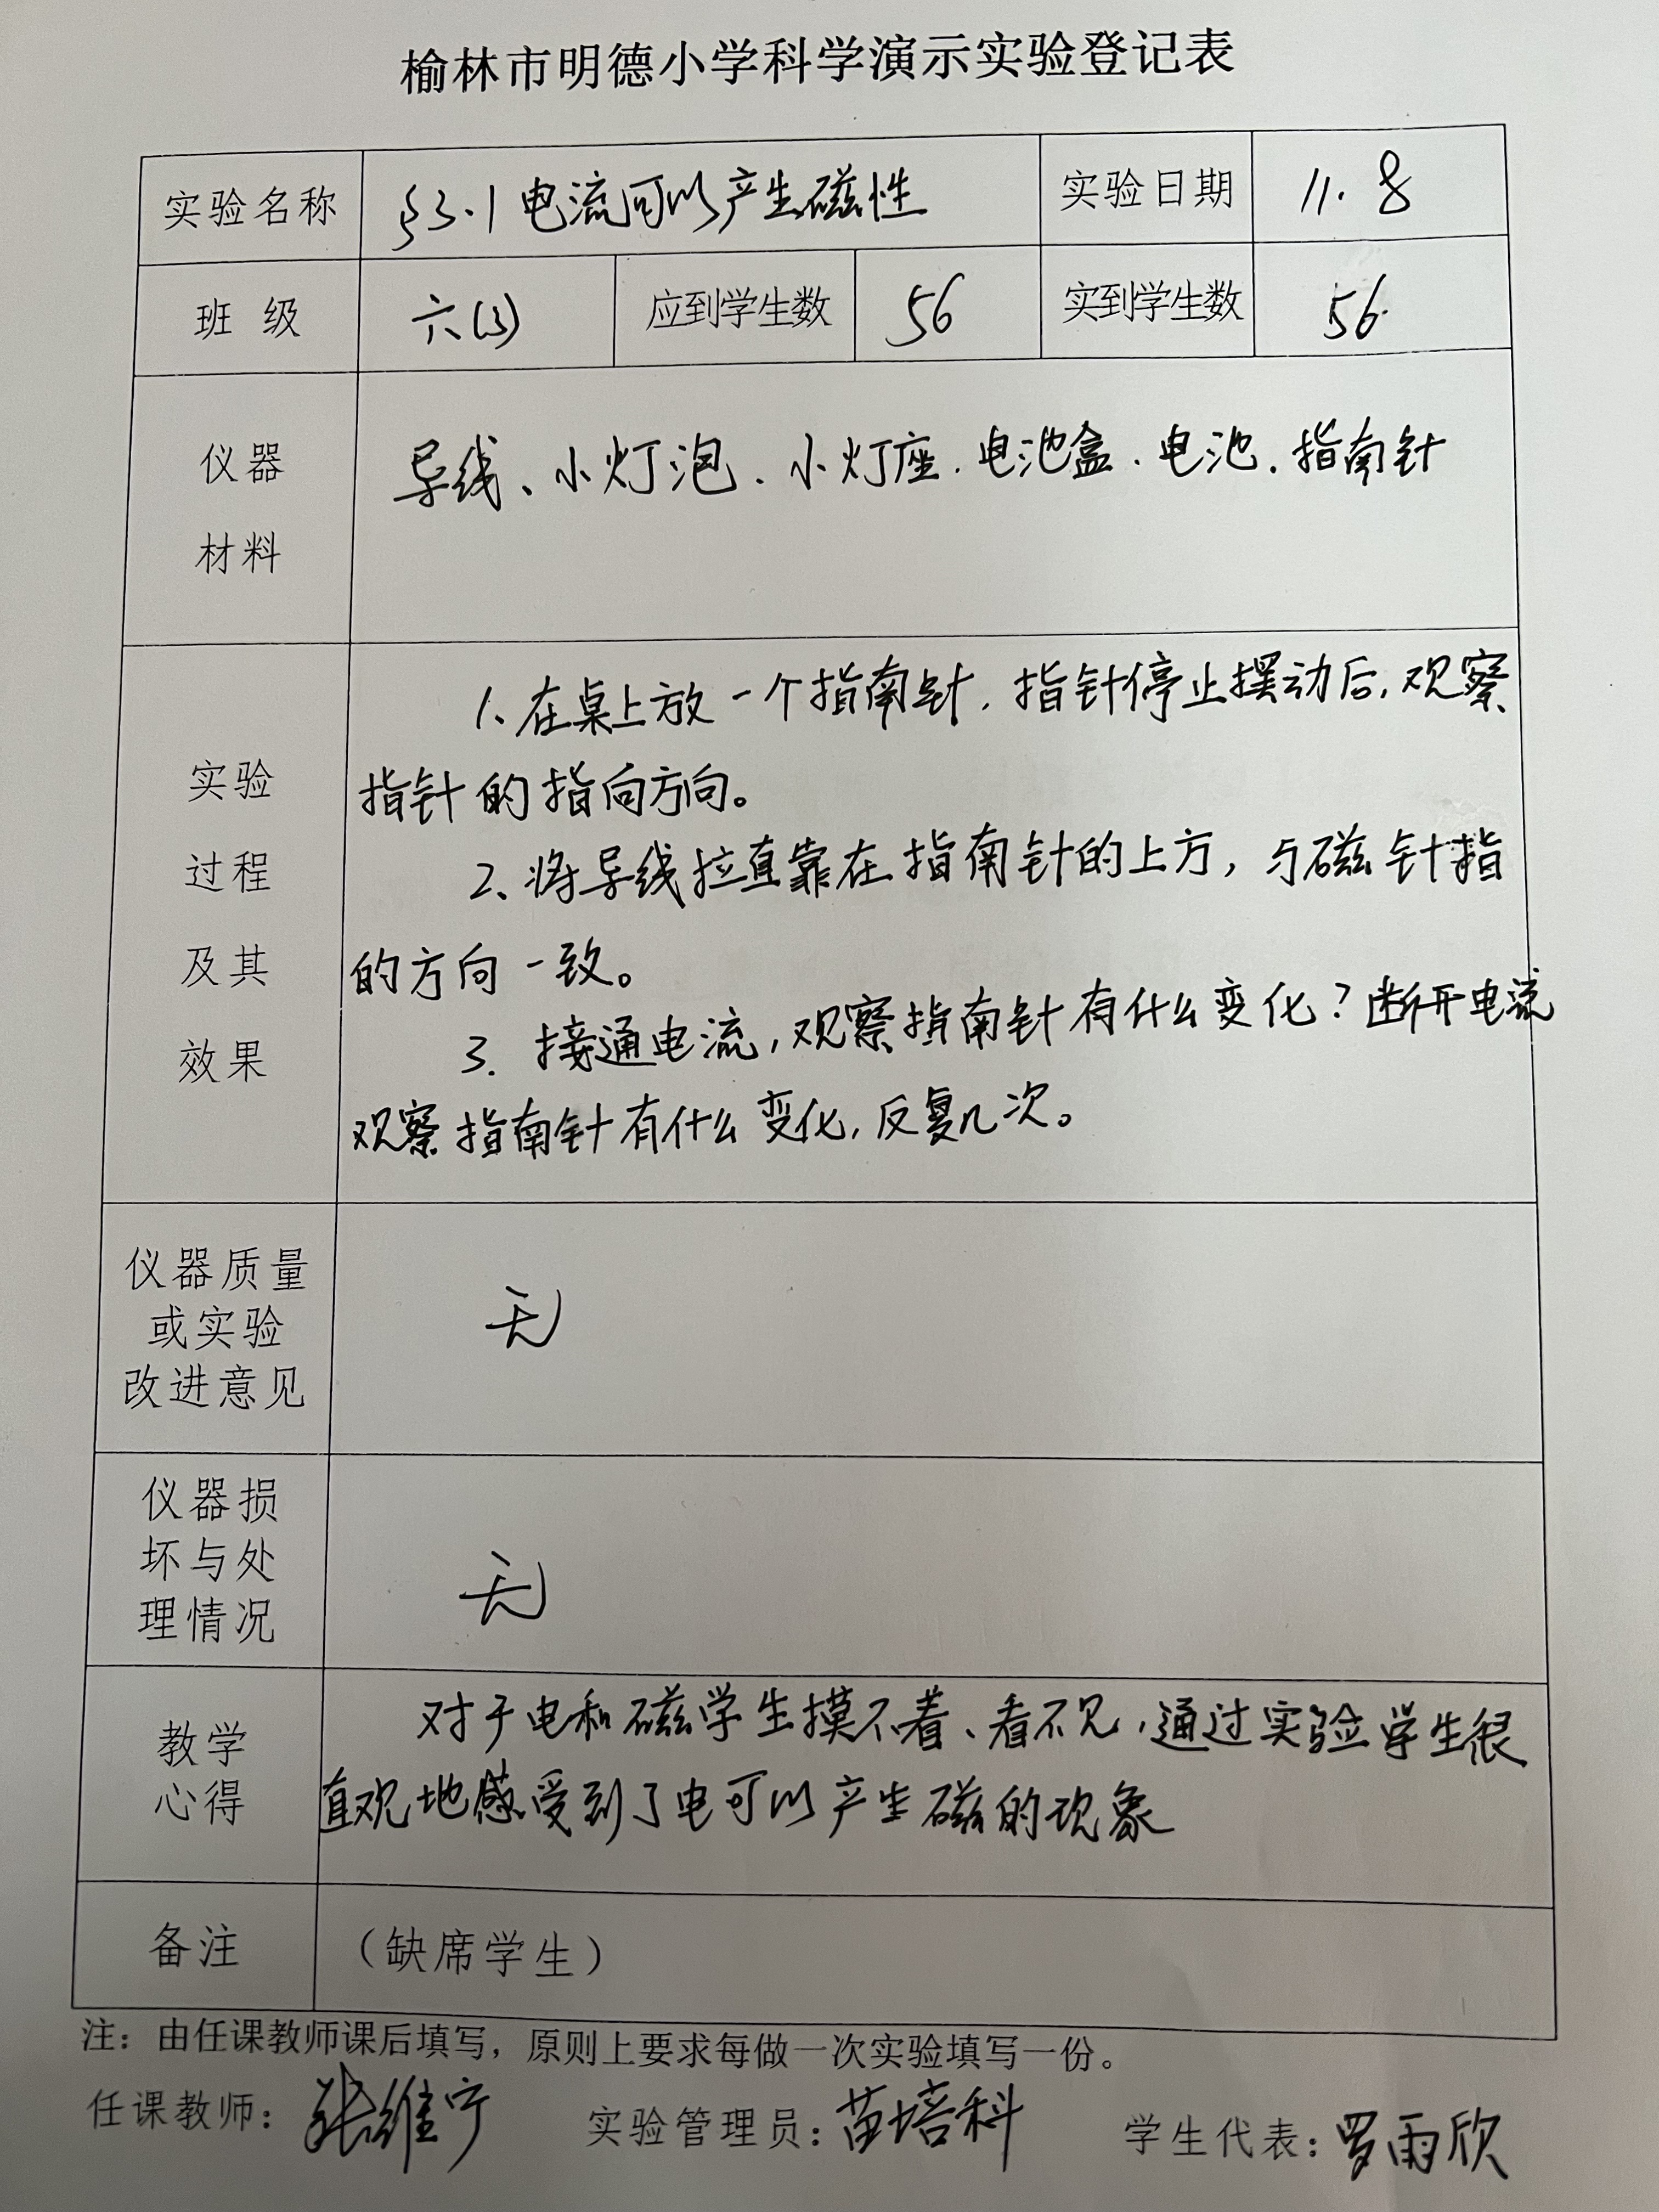 榆林市明德小学科学演示实验登记表
实验名称 §3.1 电流可以产生磁性 实验日期 11.8
班 级 六(3) 应到学生数 56 实到学生数 56.
仪器
材料
导线、小灯泡、小灯座、电池盒、电池、指南针
实验
过程
及其
效果
1、在桌上放一个指南针，指针停止摆动后，观察
指针的指向方向。
2、将导线拉直靠在指南针的上方，与磁针指
的方向一致。
3. 接通电流，观察指南针有什么变化？断开电流
观察指南针有什么变化，反复几次。
仪器质量
或实验
改进意见
无
仪器损
坏与处
理情况
无
教学
心得
对于电和磁学生摸不着、看不见，通过实验学生很
直观地感受到了电可以产生磁的现象
备注 （缺席学生）
注：由任课教师课后填写，原则上要求每做一次实验填写一份。
任课教师：张维宁 实验管理员：苗培科 学生代表：罗雨欣